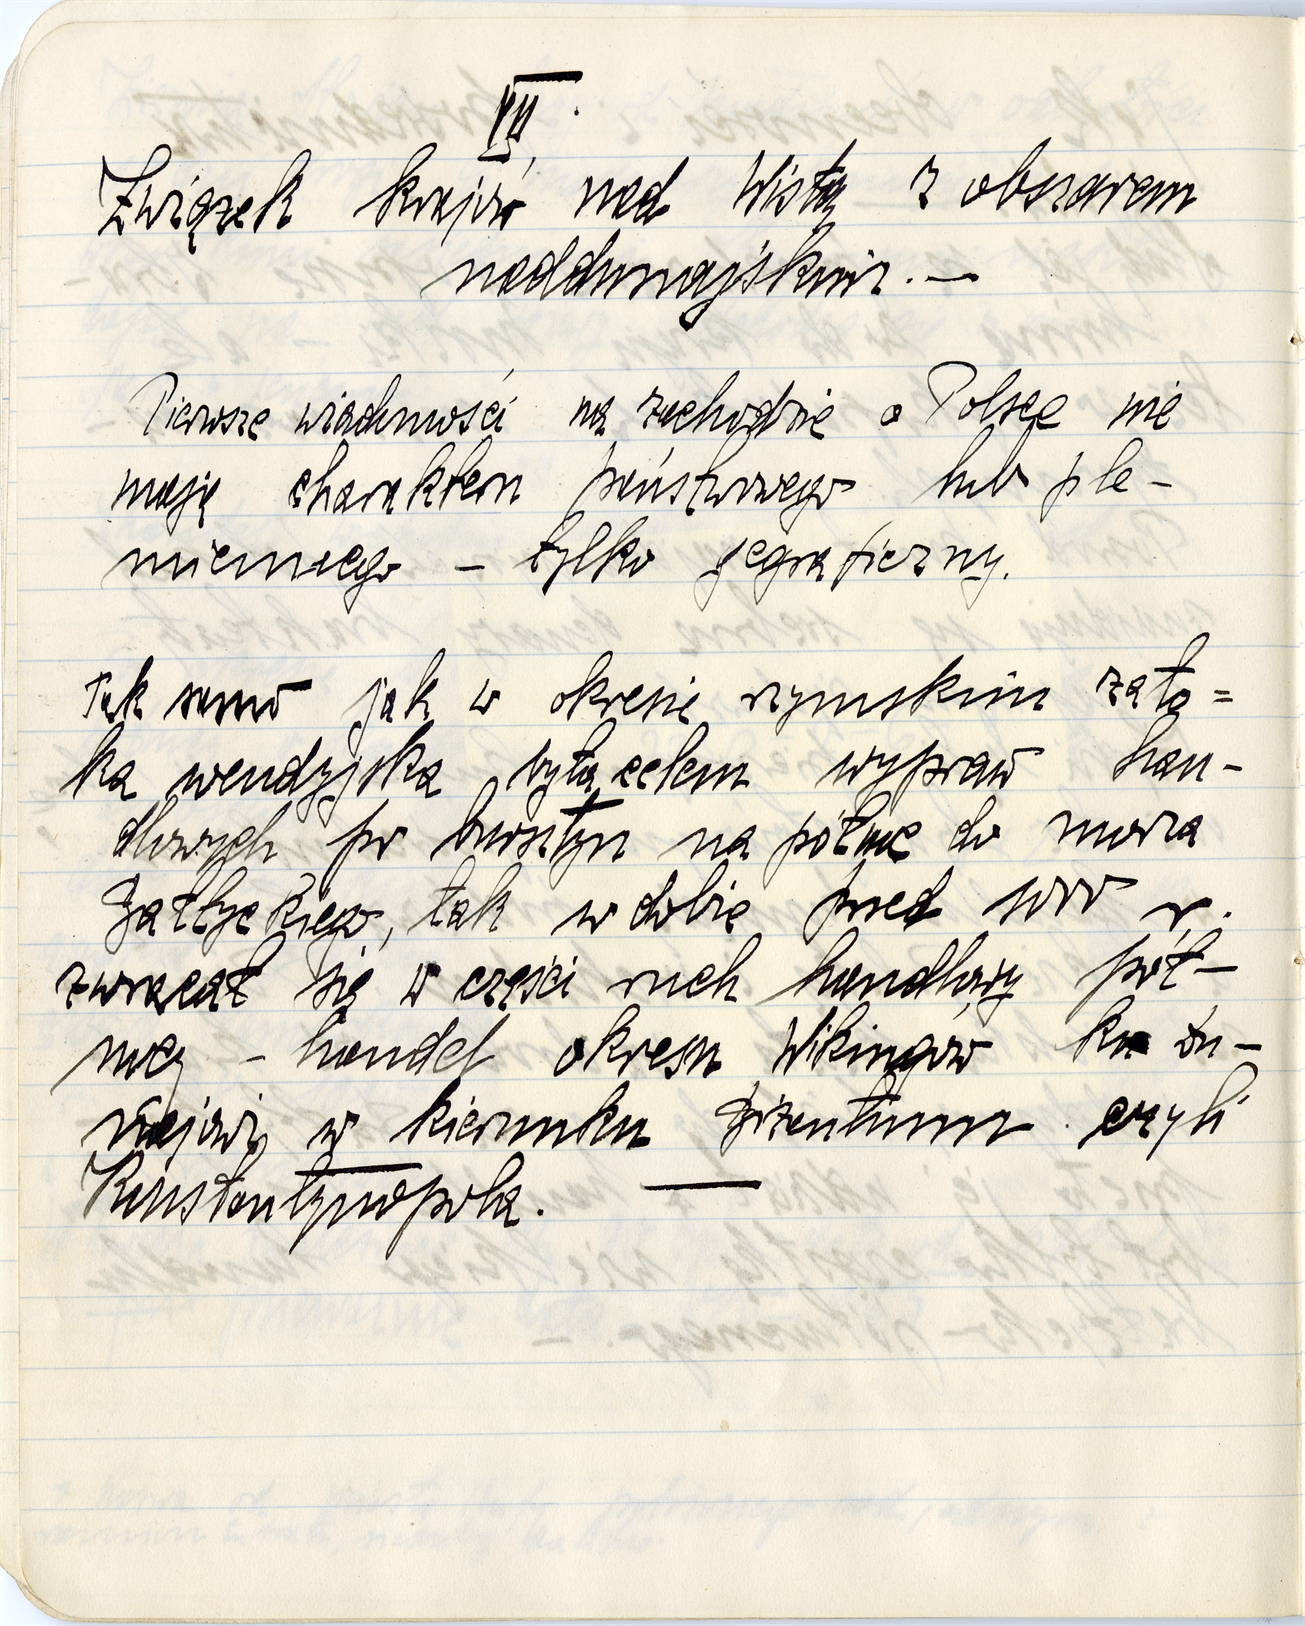 VII.
Związek krajów nad Wisłą z obszarem
naddunajskim. —
Pierwsze wiadomości na zachodzie o Polsce nie
mają charakteru państwowego lub ple-
miennego – tylko jegraficzny.
Tak samo jak w okresie rzymskim zato=
ka wendyjska była celem wypraw han-
dlowych po bursztyn na północ do morza
Bałtyckiego, tak w dobie przed 1000 r.
zwracał się w części ruch handlowy pół-
nocy – handel okresu Wikingów ku Du-
najowi w kierunku Bizantium czyli
Konstantynopola. —